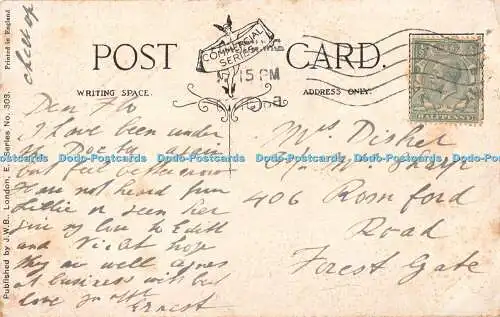 Printed in England
Cheerup
POST CARD.
COMMERCIAL
SERIES
15 PM
WRITING SPACE.
ADDRESS ONLY.
HALFPENNY
Published by J.W.B., London, E. Series No. 303.
Dear Flo
I have been under
the Doctor again
but feel better now
I have not heard from
Lillie or seen her
give my love to Edith
and Vi. & I hope
they are well Agnes
at business with bad
love from
Ernest
Mrs Disher
C/o Mrs Sharp
406 Romford
Road
Forest Gate
Dodo-Postcards Dodo-Postcards Dodo-Postcards Dodo-Postcards Dodo-Postcards